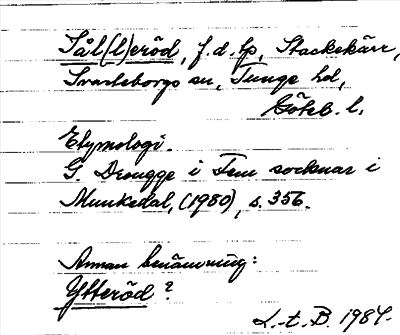 Sål(l)eröd, f.d. lp, Stackekärr,
Svarteborgs sn, Tunge hd,
Göteb. l.
Etymologi.
G. Drougge i Fem socknar i
Munkedal, (1980), s. 356.
Annan benämning:
Ytteröd?
L.-t. B. 1984.